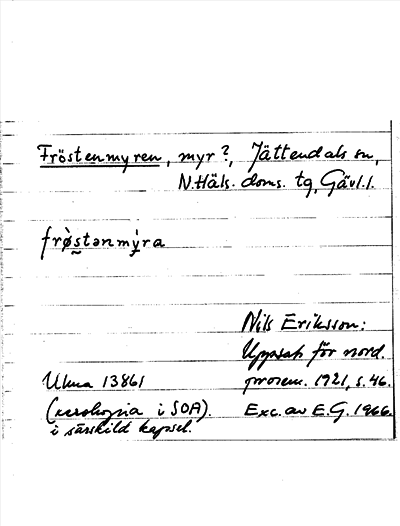 Fröstenmyren, myr?, Jättendals sn,
N.Häls. doms. tg, Gävl.l.
frø̀stənmỳra
Nils Eriksson:
Uppsats för nord.
prosem. 1921, s. 46.
Exc. av E.G. 1966.
Ulma 13861
(xerokopia i SOA).
i särskild kapsel.